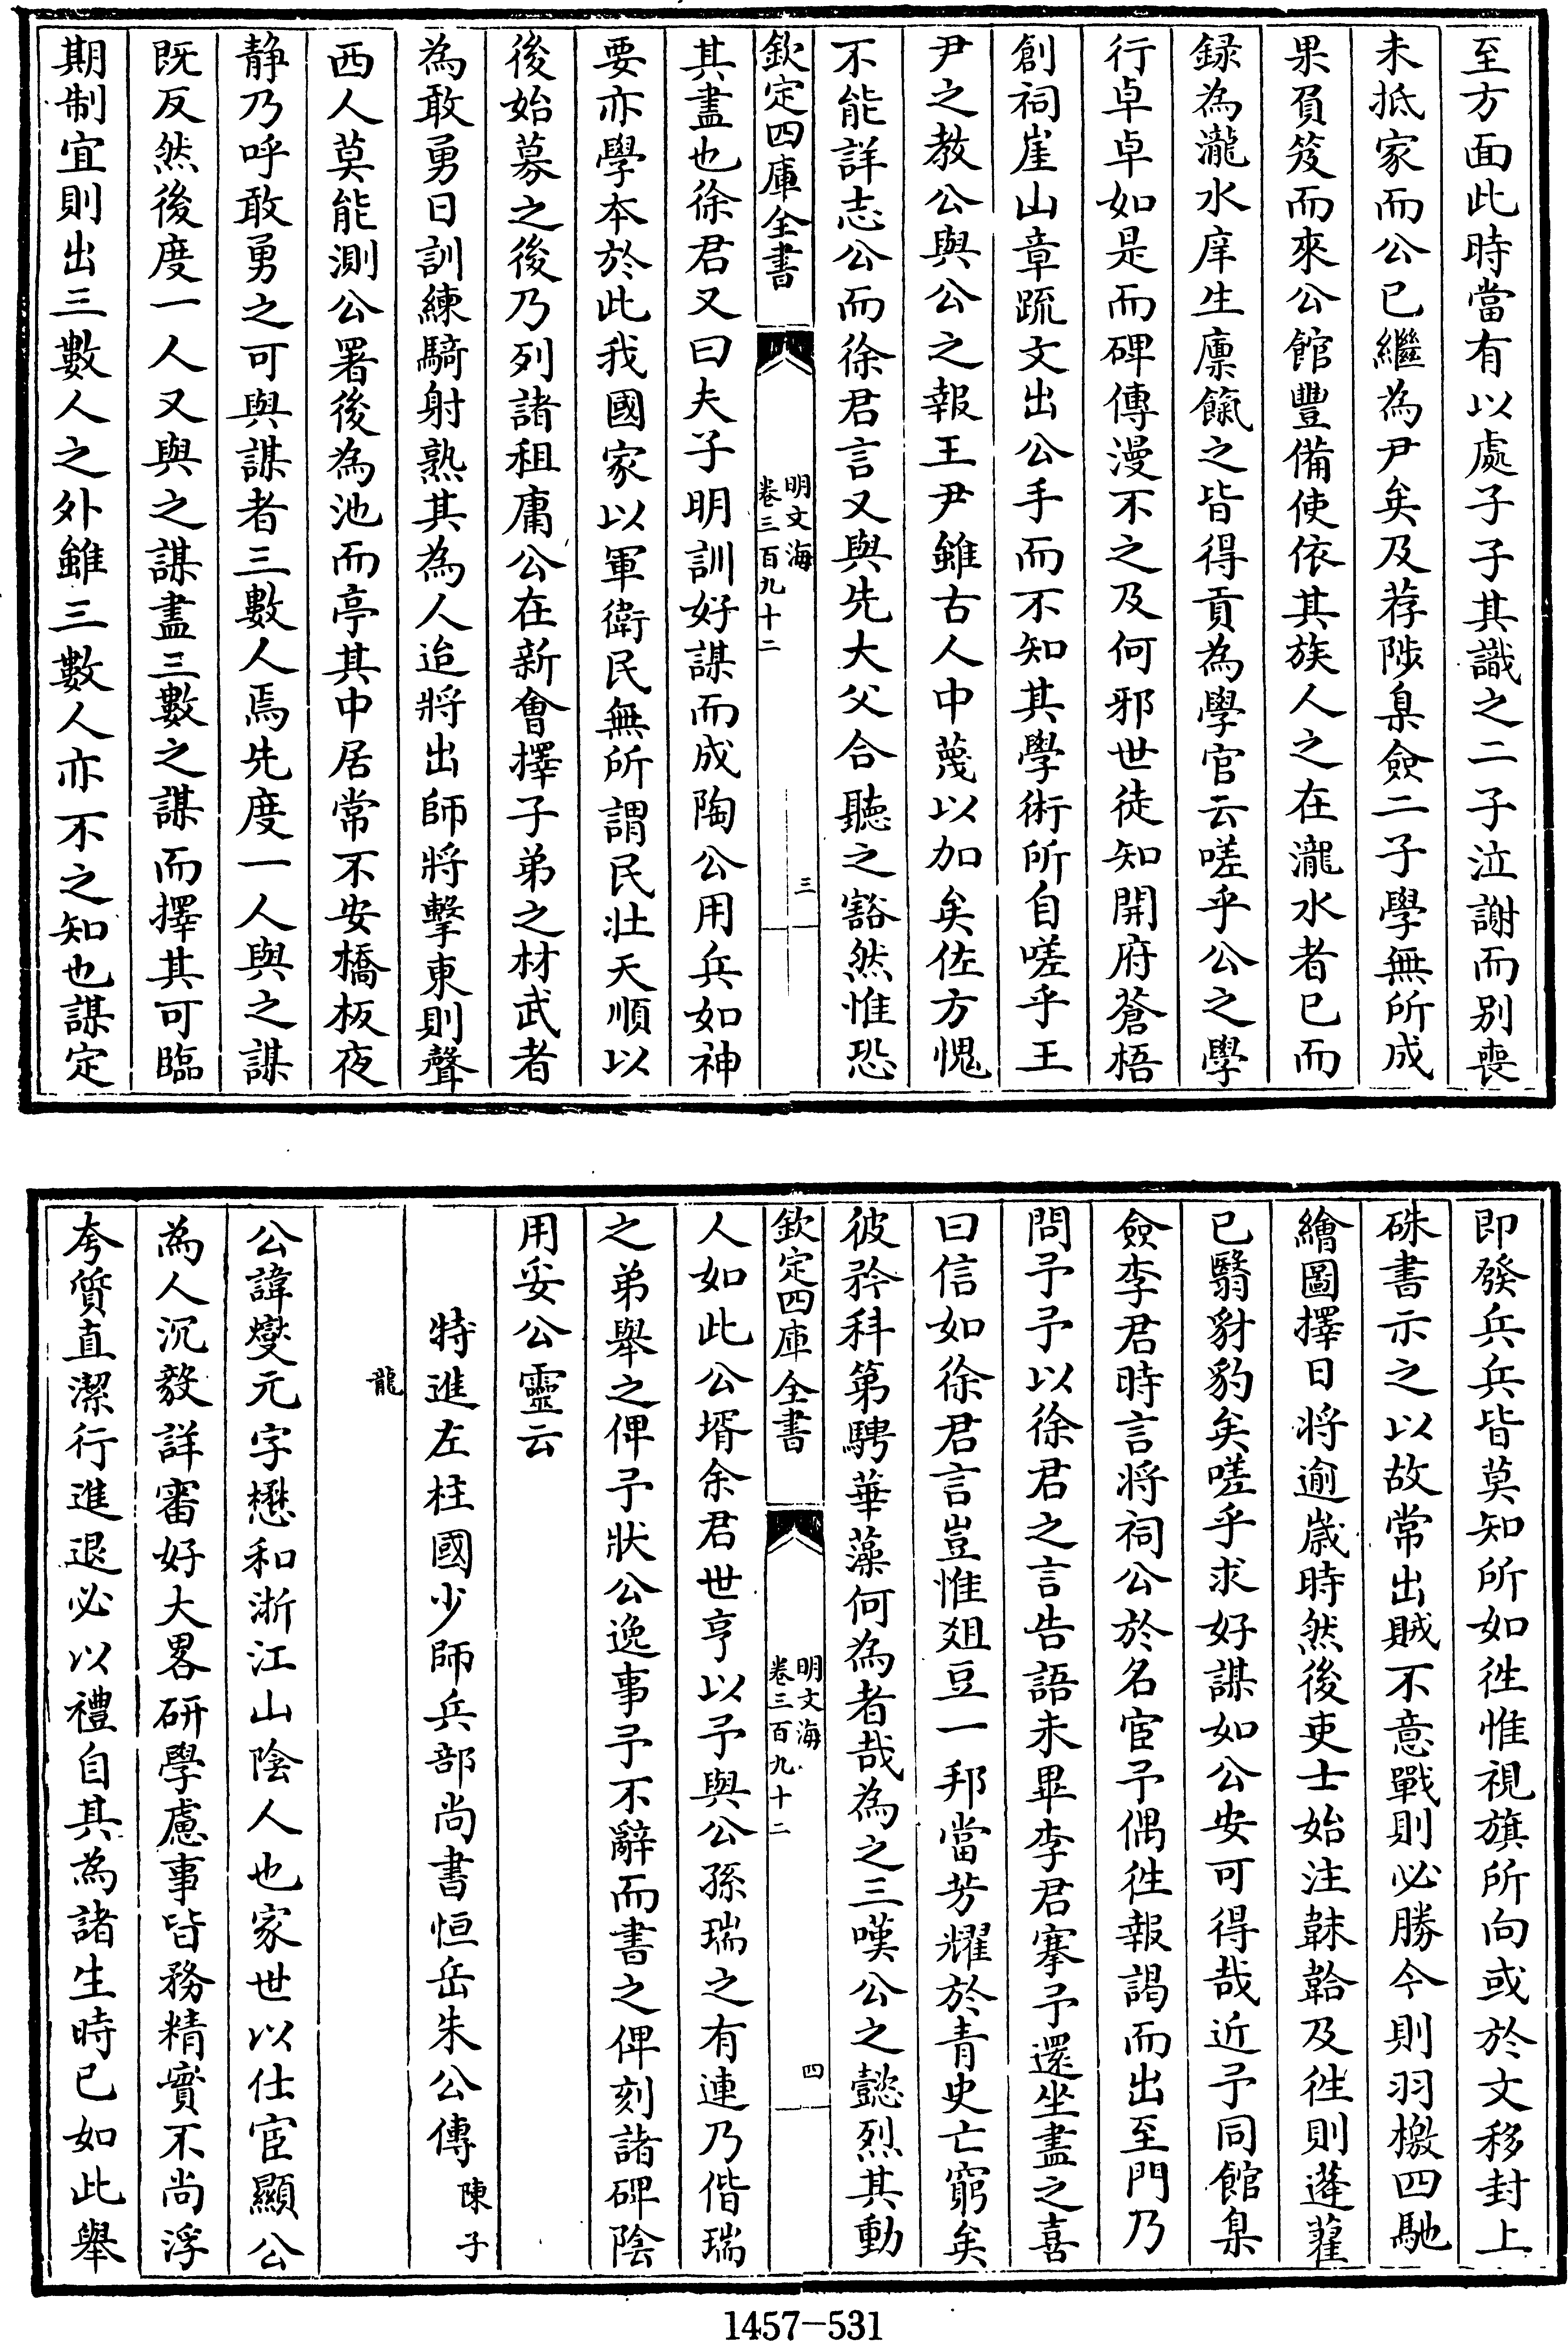 至方面此時當有以處子子其識之二子泣謝而别喪
未抵家而公已繼為尹矣及荐陟臬僉二子學無所成
果負笈而來公館豐備使依其族人之在瀧水者已而
録為瀧水庠生廪餼之皆得貢為學官云嗟乎公之學
行卓卓如是而碑傳漫不之及何邪世徒知開府蒼梧
創祠崖山章疏文出公手而不知其學術所自嗟乎王
尹之教公與公之報王尹雖古人中蔑以加矣佐方愧
不能詳志公而徐君言又與先大父合聽之豁然惟恐
欽定四庫全書
明文海
卷三百九十二
三
其盡也徐君又曰夫子明訓好謀而成陶公用兵如神
要亦學本於此我國家以軍衛民無所謂民壯天順以
後始募之後乃列諸租庸公在新會擇子弟之材武者
為敢勇日訓練騎射熟其為人迨將出師將擊東則聲
西人莫能測公署後為池而亭其中居常不安橋板夜
静乃呼敢勇之可與謀者三數人焉先度一人與之謀
既反然後度一人又與之謀盡三數之謀而擇其可臨
期制宜則出三數人之外雖三數人亦不之知也謀定
即發兵兵皆莫知所如徃惟視旗所向或於文移封上
硃書示之以故常出賊不意戰則必勝今則羽檄四馳
繪圖擇日將逾歲時然後吏士始注韎韐及徃則蓬藋
已翳豺豹矣嗟乎求好謀如公安可得哉近予同館臬
僉李君時言將祠公於名宦予偶徃報謁而出至門乃
問予予以徐君之言告語未畢李君搴予還坐盡之喜
曰信如徐君言豈惟俎豆一邦當芳耀於青史亡窮矣
彼矜科第騁華藻何為者哉為之三嘆公之懿烈其動
欽定四庫全書
明文海
卷三百九十二
四
人如此公壻余君世亨以予與公孫瑞之有連乃偕瑞
之弟舉之俾予狀公逸事予不辭而書之俾刻諸碑陰
用妥公靈云
特進左柱國少師兵部尚書恒岳朱公傳陳子
龍
公諱燮元字懋和浙江山陰人也家世以仕宦顯公
為人沉毅詳審好大畧研學慮事皆務精實不尚浮
夸質直潔行進退必以禮自其為諸生時已如此舉
1457-531